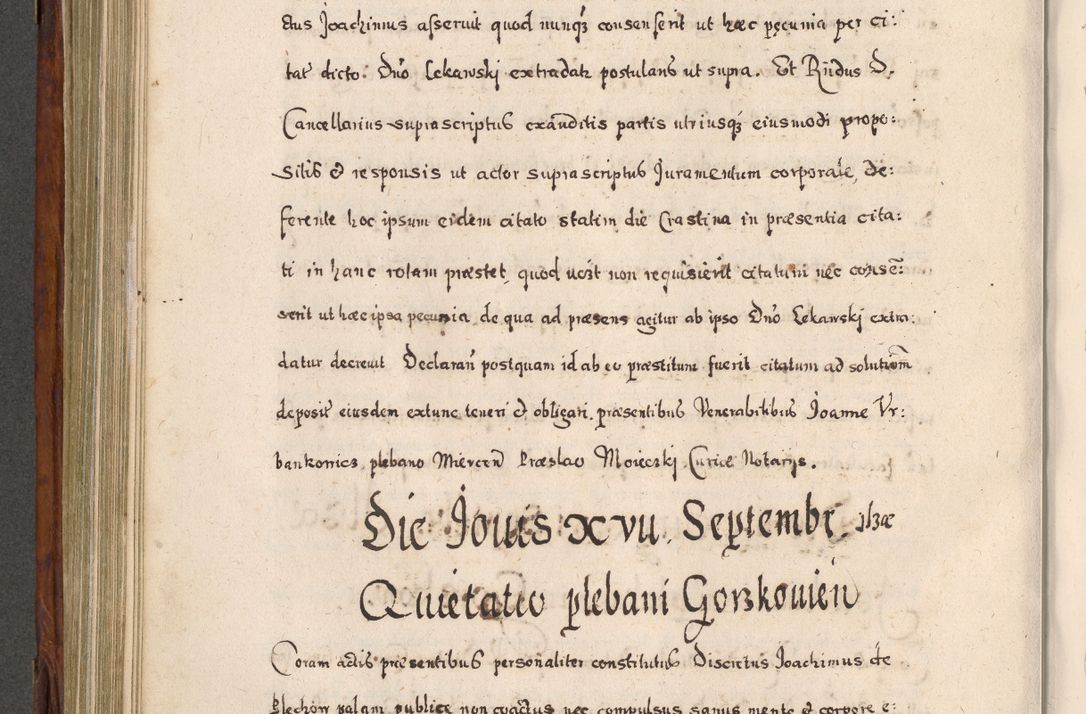 ctus Joachimus asseruit quod nunqz consenserit ut hæc pecunia per ci:
tat dicto. Dno Lekawski extradatz postulans ut supra. Et Rndus D.
Cancellarius suprascriptus exauditis partis utriusqz eiusmodi propo:
sitis & responsis ut actor suprascriptus Juramentum corporale, de:
ferente hoc ipsum eidem citato statim die Crastina in præsentia cita:
ti in hanc rotam præstet, quod uczt non requisierit citatum nec conse:
serit ut hæc ipsa pecunia de qua ad præsens agitur ab ipso Dno Lekawski extra:
datur decreuit Declaran postquam id ab eo præstitum fuerit citatum ad solutiom
deposit eiusdem extunc teneri & obligari, præsentibus Venerabilibus Joanne Vr:
bankowicz plebano Miercen Præslao Moieczki Curiæ Notarijs.
Die Jouis xvii. Septembr.
Quietatio plebani Gorzkouien
Coram actis præsentibus personaliter constitutus Discretus Joachimus de
Plechow palam publice non coactus nec compulsus sanus mente & corpore e: